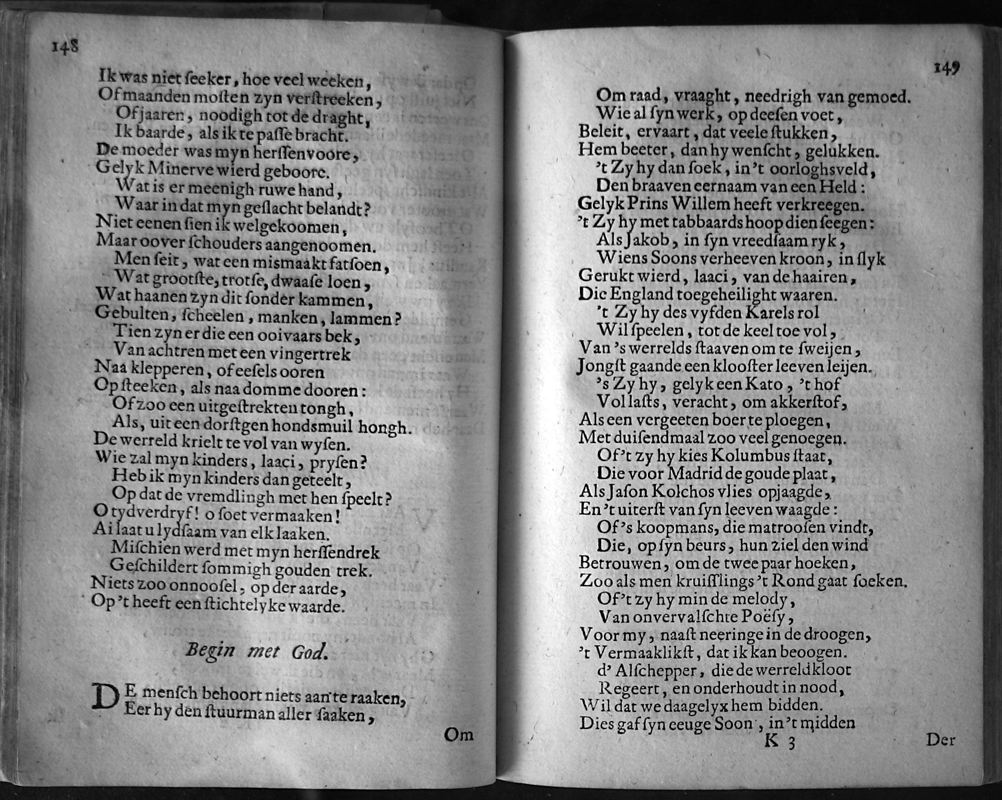 148
Ik was niet ſeeker, hoe veel weeken,
Of maanden moſten zyn verſtreeken,
Of jaaren, noodigh tot de draght,
Ik baarde, als ik te paſſe bracht.
De moeder was myn herſſenvoore,
Gelyk Minerve wierd geboore.
Wat is er meenigh ruwe hand,
Waar in dat myn geſlacht belandt?
Niet eenen ſien ik welgekoomen,
Maar oover ſchouders aangenoomen.
Men ſeit, wat een mismaakt fatſoen,
Wat grootſte, trotſe, dwaaſe loen,
Wat haanen zyn dit ſonder kammen,
Gebulten, ſcheelen, manken, lammen?
Tien zyn er die een ooivaars bek,
Van achtren met een vingertrek
Naa klepperen, of eeſels ooren
Op ſteeken, als naa domme dooren:
Of zoo een uitgeſtrekten tongh,
Als, uit een dorſtgen hondsmuil hongh.
De werreld krielt te vol van wyſen.
Wie zal myn kinders, laaci, pryſen?
Heb ik myn kinders dan geteelt,
Op dat de vremdlingh met hen ſpeelt?
O tydverdryf! o ſoet vermaaken!
Ai laat u lydſaam van elk laaken.
Miſchien werd met myn herſſendrek
Geſchildert ſommigh gouden trek.
Niets zoo onnooſel, op der aarde,
Op 't heeft een ſtichtelyke waarde.
Begin met God.
DE menſch behoort niets aan te raaken,
Eer hy den ſtuurman aller ſaaken,
Om
149
Om raad, vraaght, needrigh van gemoed.
Wie al ſyn werk, op deeſen voet,
Beleit, ervaart, dat veele ſtukken,
Hem beeter, dan hy wenſcht, gelukken.
't Zy hy dan ſoek, in 't oorloghsveld,
Den braaven eernaam van een Held:
Gelyk Prins Willem heeft verkreegen.
't Zy hy met tabbaards hoop dien ſeegen:
Als Jakob, in ſyn vreedſaam ryk,
Wiens Soons verheeven kroon, in ſlyk
Gerukt wierd, laaci, van de haairen,
Die England toegeheilight waaren.
't Zy hy des vyfden Karels rol
Wil ſpeelen, tot de keel toe vol,
Van 's werrelds ſtaaven om te ſweijen,
Jongſt gaande een klooſter leeven leijen.
's Zy hy, gelyk een Kato, 't hof
Vol laſts, veracht, om akkerſtof,
Als een vergeeten boer te ploegen,
Met duiſendmaal zoo veel genoegen.
Of 't zy hy kies Kolumbus ſtaat,
Die voor Madrid de goude plaat,
Als Jaſon Kolchos vlies opjaagde,
En 't uiterſt van ſyn leeven waagde:
Of 's koopmans, die matrooſen vindt,
Die, op ſyn beurs, hun ziel den wind
Betrouwen, om de twee paar hoeken,
Zoo als men kruiſſlings 't Rond gaat ſoeken.
Of 't zy hy min de melody,
Van onvervalſchte Poëſy,
Voor my, naaſt neeringe in de droogen,
't Vermaaklikſt, dat ik kan beoogen.
d' Alſchepper, die de werreldkloot
Regeert, en onderhoudt in nood,
Wil dat we daagelyx hem bidden.
Dies gaf ſyn eeuge Soon, in 't midden
K 3
Der